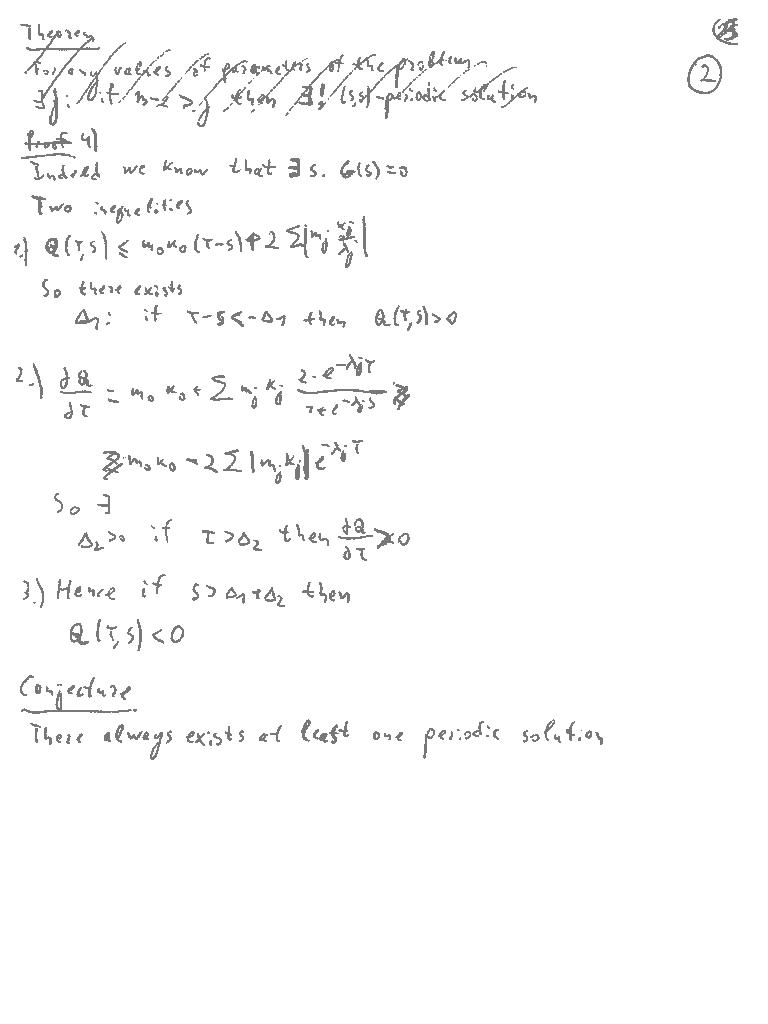 Theorem
2
For any values of parameters of the problem
∃ j: if m-2 ≥ j then ∃! (s,s)-periodic solution
Proof 4)
Indeed we know that ∃ s. G(s)=0
Two inequalities
1.) Q(τ,s) ≤ m₀κ₀(τ-s) + 2 Σ|mⱼ κⱼ/λⱼ|
So there exists
Δ₁: if τ-s<-Δ₁ then Q(τ,s)>0
2.) ∂Q/∂τ = m₀ κ₀ + Σ mⱼ κⱼ (2·e^{-λⱼτ})/(1+e^{-λⱼs}) ≥
≥ m₀κ₀ - 2 Σ |mⱼκⱼ| e^{-λⱼτ}
So ∃
Δ₂>0 if τ>Δ₂ then ∂Q/∂τ >0
3.) Hence if s>Δ₁+Δ₂ then
Q(τ,s)<0
Conjecture
There always exists at least one periodic solution